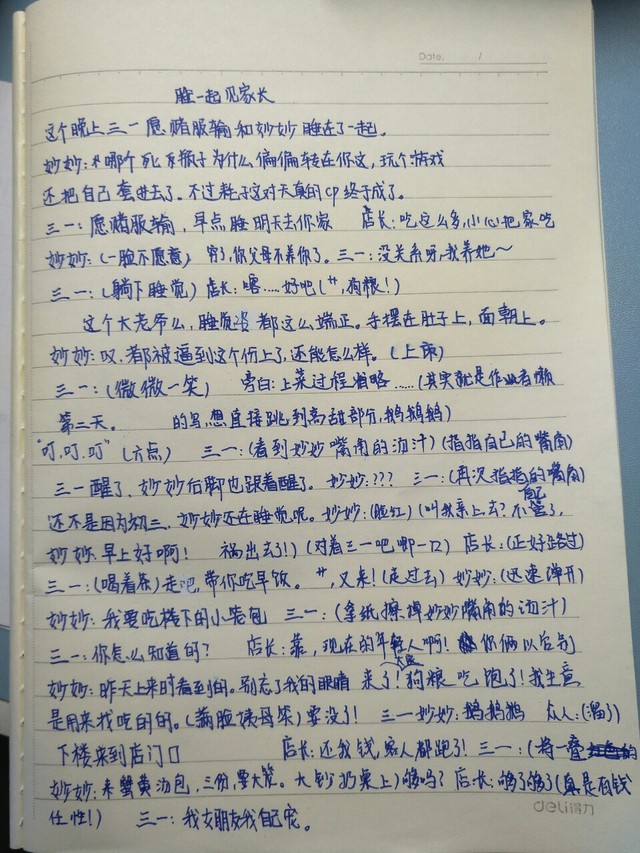 Date. /
睡一起见家长
这个晚上三一愿赌服输和妙妙睡在了一起。
妙妙:哪个死瓶子为什么偏偏转在你这,玩个游戏
还把自己套进去了。不过耗子这对天真的cp终于成了。
三一:愿赌服输,早点睡明天去你家 店长:吃这么多,小心把家吃
妙妙:(一脸不愿意) 穷了,你父母不养你了。三一:没关系呀,我养她~
三一:(躺下睡觉) 店长:喀……好吧(艹,狗粮!)
这个大老爷么,睡觉都这么端正。手摆在肚子上,面朝上。
妙妙:叹,都被逼到这个份上了,还能怎么样。(上床)
三一:(微微一笑) 旁白:上菜过程省略……(其实就是作者懒
第二天。 的写,想直接跳到高甜部分,鹅鹅鹅)
“叮,叮,叮”(六点) 三一:(看到妙妙嘴角的汤汁)(指指自己的嘴角)
三一醒了、妙妙后脚也跟着醒了。妙妙:??? 三一:(再次指指自己的嘴角)
还不是因为初三、妙妙还在睡觉呢。妙妙:(脸红)(叫我亲上去?不管了,
妙妙.早上好啊! 豁出去了!)(对着三一吧唧一口) 店长:(正好路过)
三一:(喝着茶)走吧,带你吃早饭。 艹,又来!(走过去) 妙妙:(迅速弹开)
妙妙:我要吃楼下的小笼包 三一:(拿纸擦掉妙妙嘴角的汤汁)
三一:你怎么知道的? 店长:靠,现在的年轻人啊!你俩以后别
妙妙:昨天上来时看到的。别忘了我的眼睛 来了!狗粮吃饱了!我生意
是用来找吃的的。(满脸姨母笑) 要没了! 三一妙妙:鹅鹅鹅 众人:(溜了)
下楼来到店门口 店长:还我钱,客人都跑了! 三一:(将一叠
妙妙:来蟹黄汤包,三份,要大笼。 大钞扔桌上)够吗? 店长:够了够了(真是有钱
任性!) 三一:我女朋友我自己宠。
deli得力